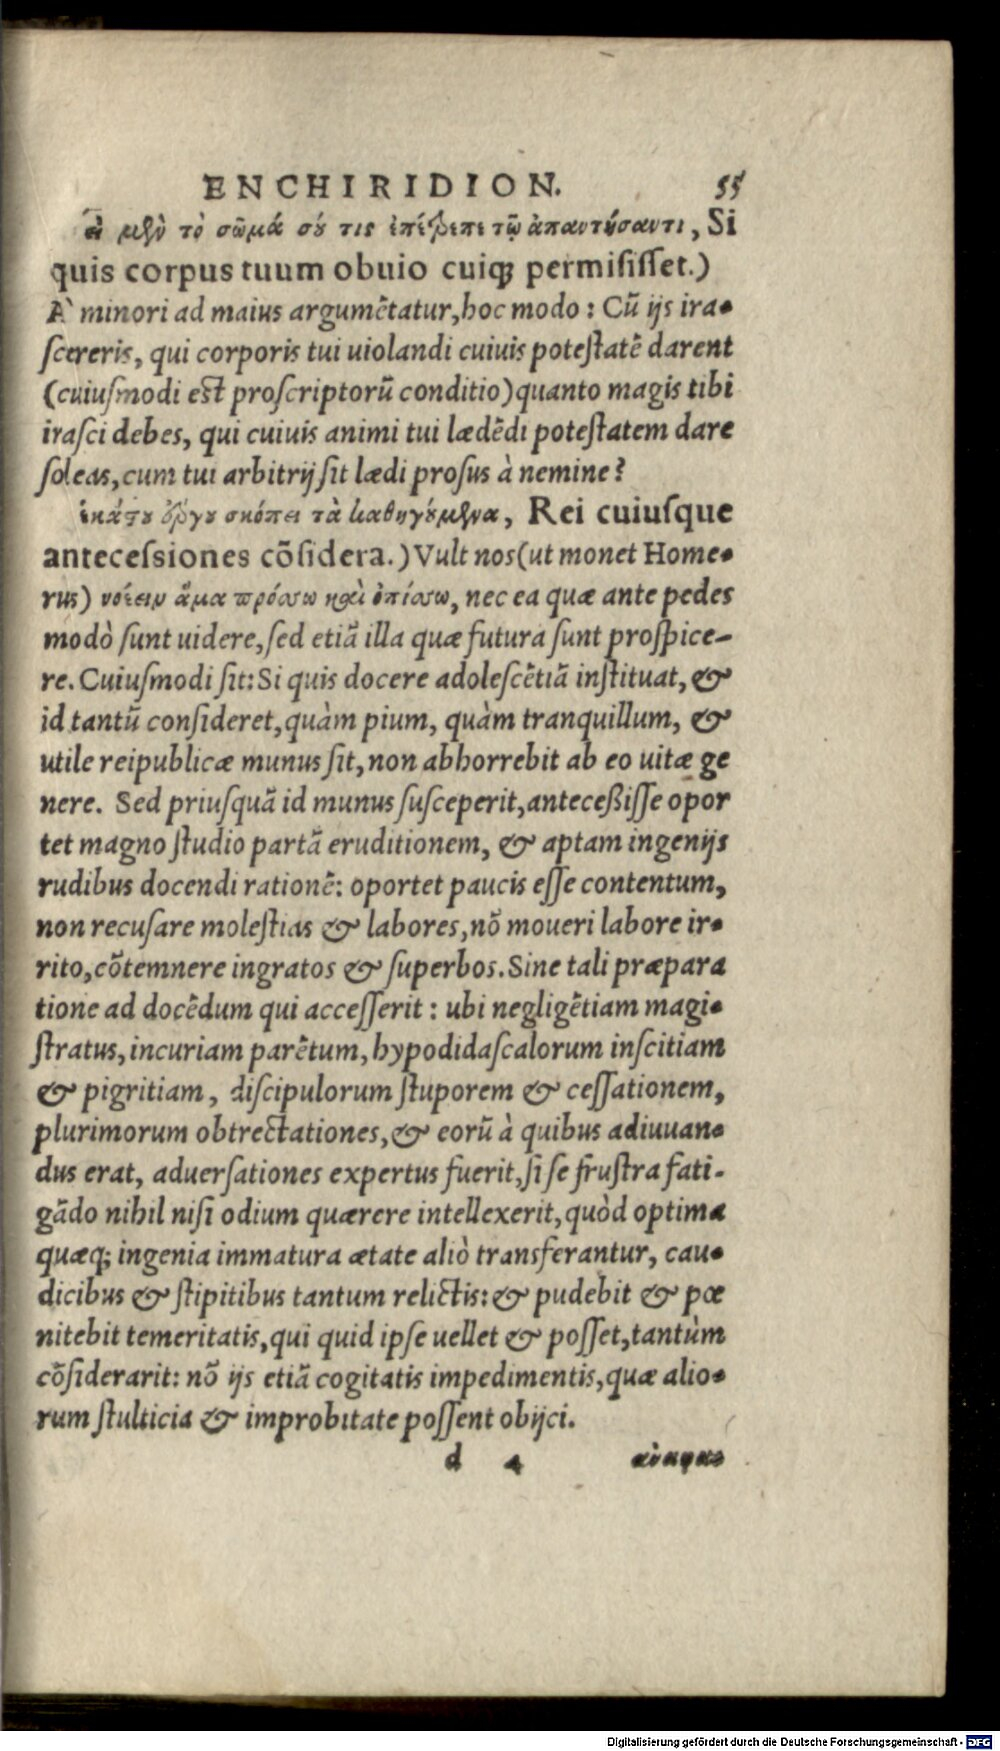 ENCHIRIDION. 55
εἰ μὲν τὸ σῶμά σού τις ἐπέτρεπε τῷ ἀπαντήσαντι, Si
quis corpus tuum obuio cuiq; permisisset.)
A' minori ad maius argumẽtatur, hoc modo: Cũ ijs ira-
scereris, qui corporis tui uiolandi cuiuis potestatẽ darent
(cuiusmodi est proscriptorũ conditio) quanto magis tibi
irasci debes, qui cuiuis animi tui lædẽdi potestatem dare
soleas, cum tui arbitrij sit lædi prosus à nemine?
ἑκάστου ἔργου σκόπει τὰ καθηγούμενα, Rei cuiusque
antecessiones cõsidera.) Vult nos (ut monet Home-
rus) νοέειν ἅμα πρόσσω καὶ ὀπίσσω, nec ea quæ ante pedes
modò sunt uidere, sed etiã illa quæ futura sunt prospice-
re. Cuiusmodi sit: Si quis docere adolescẽtiã instituat, &
id tantũ consideret, quàm pium, quàm tranquillum, &
utile reipublicæ munus sit, non abhorrebit ab eo uitæ ge
nere. Sed priusquã id munus susceperit, anteceßisse opor
tet magno studio partã eruditionem, & aptam ingenijs
rudibus docendi rationẽ: oportet paucis esse contentum,
non recusare molestias & labores, nõ moueri labore ir-
rito, cõtemnere ingratos & superbos. Sine tali præpara
tione ad docẽdum qui accesserit: ubi negligẽtiam magi-
stratus, incuriam parẽtum, hypodidascalorum inscitiam
& pigritiam, discipulorum stuporem & cessationem,
plurimorum obtrectationes, & eorũ à quibus adiuuan-
dus erat, aduersationes expertus fuerit, si se frustra fati-
gãdo nihil nisi odium quærere intellexerit, quòd optima
quæq; ingenia immatura ætate aliò transferantur, cau-
dicibus & stipitibus tantum relictis: & pudebit & pœ
nitebit temeritatis, qui quid ipse uellet & posset, tantùm
cõsiderarit: nõ ijs etiã cogitatis impedimentis, quæ alio-
rum stulticia & improbitate possent obijci.
d 4 ἀναφαι
Digitalisierung gefördert durch die Deutsche Forschungsgemeinschaft - DFG